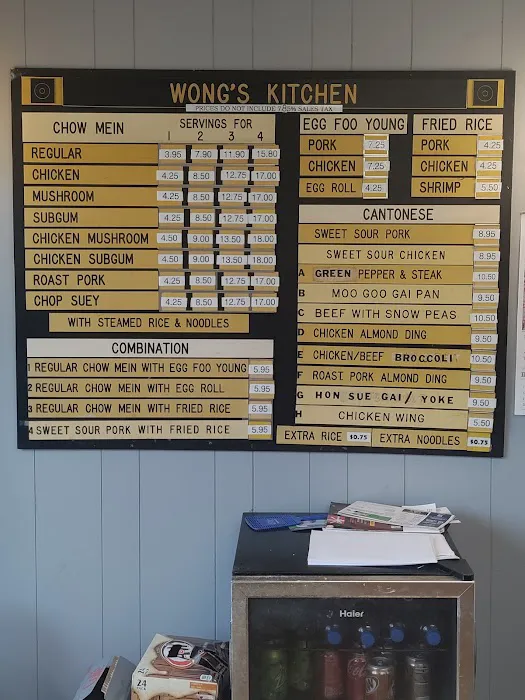 WONG'S KITCHEN
PRICES DO NOT INCLUDE 7.85% SALES TAX
CHOW MEIN SERVINGS FOR
1 2 3 4
REGULAR 3.95 7.90 11.90 15.80
CHICKEN 4.25 8.50 12.75 17.00
MUSHROOM 4.25 8.50 12.75 17.00
SUBGUM 4.25 8.50 12.75 17.00
CHICKEN MUSHROOM 4.50 9.00 13.50 18.00
CHICKEN SUBGUM 4.50 9.00 13.50 18.00
ROAST PORK 4.25 8.50 12.75 17.00
CHOP SUEY 4.25 8.50 12.75 17.00
WITH STEAMED RICE & NOODLES
COMBINATION
1 REGULAR CHOW MEIN WITH EGG FOO YOUNG 5.95
2 REGULAR CHOW MEIN WITH EGG ROLL 5.95
3 REGULAR CHOW MEIN WITH FRIED RICE 5.95
4 SWEET SOUR PORK WITH FRIED RICE 5.95
EGG FOO YOUNG
PORK 7.25
CHICKEN 7.25
EGG ROLL 4.25
FRIED RICE
PORK 4.25
CHICKEN 4.25
SHRIMP 5.50
CANTONESE
SWEET SOUR PORK 8.95
SWEET SOUR CHICKEN 8.95
A GREEN PEPPER & STEAK 10.50
B MOO GOO GAI PAN 9.50
C BEEF WITH SNOW PEAS 10.50
D CHICKEN ALMOND DING 9.50
E CHICKEN/BEEF BROCCOLI 10.50
F ROAST PORK ALMOND DING 9.50
G HON SUE GAI/ YOKE 9.50
H CHICKEN WING 5.50
EXTRA RICE $0.75 EXTRA NOODLES $0.75
Haier
24